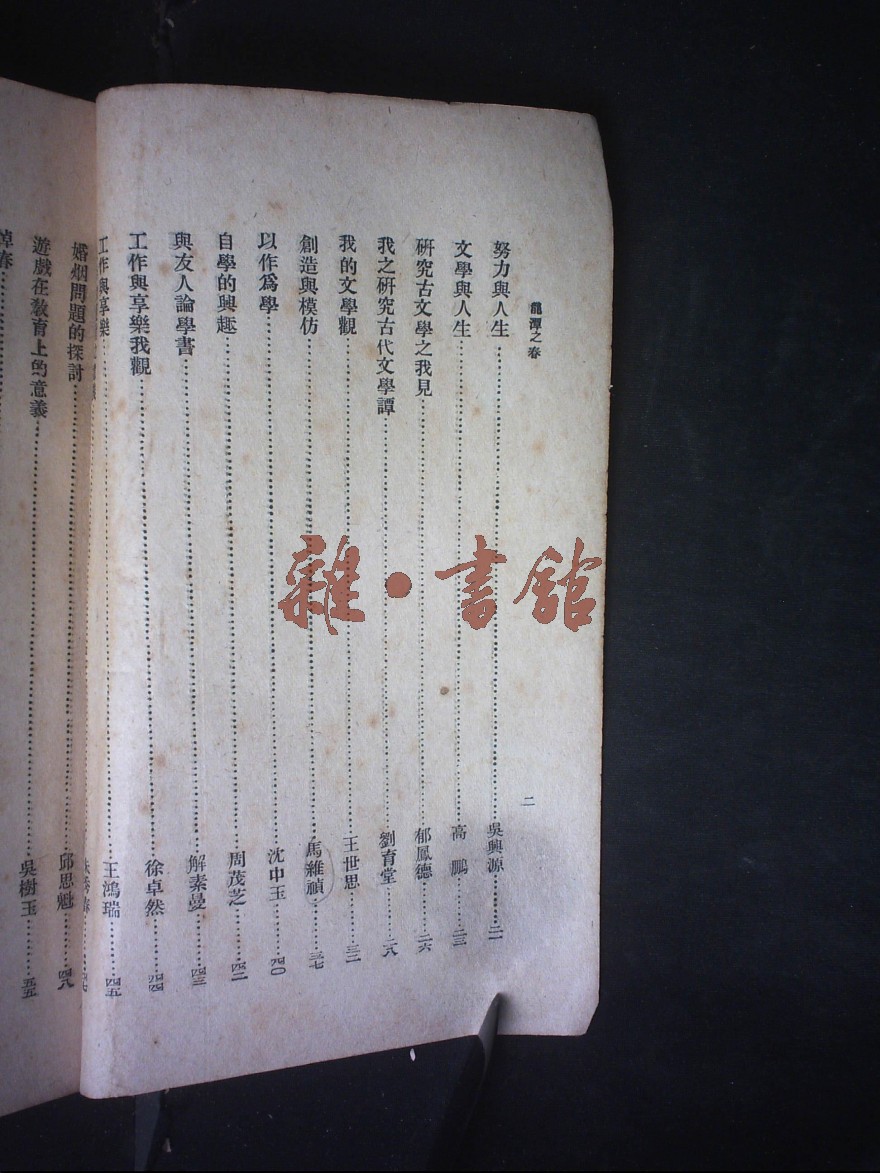 龍潭之春
二
努力與人生……吳興源……二一
文學與人生……高鵬……二三
研究古文學之我見……郁鳳德……二六
我之研究古代文學譚……劉育堂……二八
我的文學觀……王世思……三二
創造與模仿……馬維禎……三七
以作爲學……沈中玉……四〇
自學的興趣……周茂芝……四二
與友人論學書……解素曼……四三
工作與享樂我觀……徐卓然……四四
工作與享樂……王鴻瑞……四五
婚姻問題的探討……邱思魁……四八
遊戲在教育上的意義……吳樹玉……五五
雜·書館